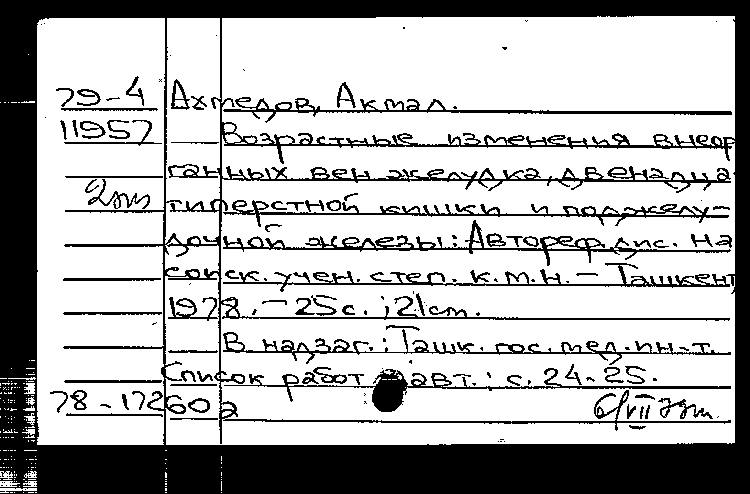 79-4 Ахмедов, Акмал.
11957 Возрастные изменения внеор
ганных вен желудка, двенадца
2 эт типерстной кишки и поджелу-
дочной железы: Автореф. дис. на
соиск. учен. степ. к.м.н. - Ташкент,
1978. - 25 с. ; 21 cm.
В надзаг.: Ташк. гос. мед. ин-т.
Список работ авт.: с. 24-25.
78-172602